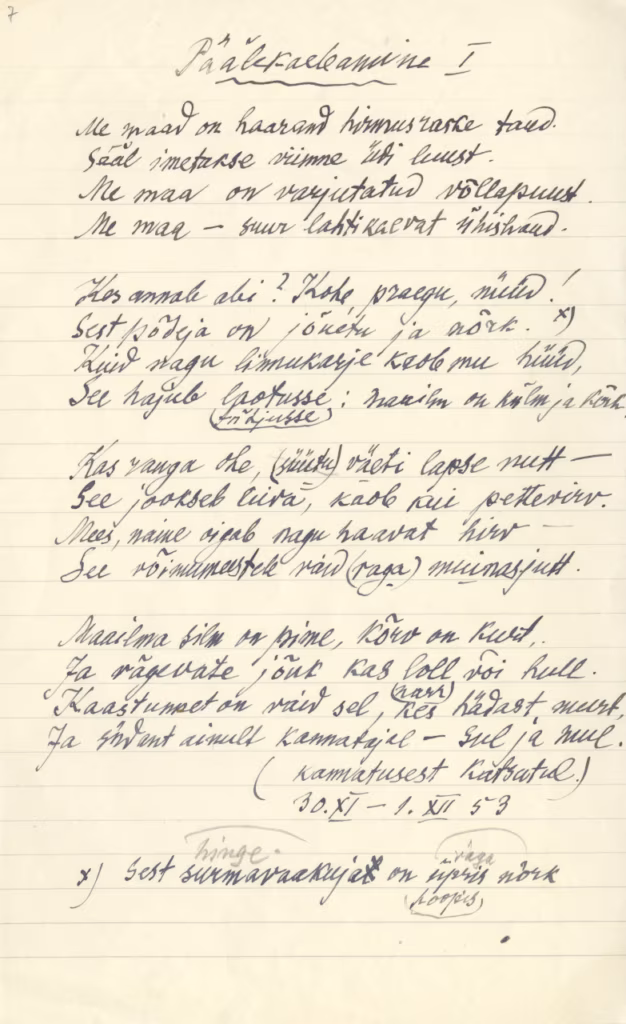 7
Päälekaebamine I
Me maad on haarand hirmusraske taud.
Sääl imetakse viimne üdi luust.
Me maa on varjutatud võllapuust.
Me maa – suur lahtikaevat ühishaud.
Kes annab abi? Kohe, praegu, nüüd!
Sest põdeja on jõuetu ja nõrk. x)
Kuid nagu linnukarje kaob mu hüüd,
See hajub laotusse: maailm on külm ja kõrk.
(tühjusse)
Kas vanga ohe, (süütu) väeti lapse nutt –
See jookseb liiva, kaob kui pettevirv.
Mees, naine oigab nagu haavat hirv –
See võimumeestele vaid (vaga) muinasjutt.
Maailma silm on pime, kõrv on kurt,
Ja vägevate jõuk kas loll või hull.
(narr)
Kaastunnet on vaid sel, kes hädast murt,
Ja südant ainult kannatajal – sul ja mul.
(kannatusest katsutul.)
30.XI – 1. XII 53
hinge väga
x) Sest surmavaakuja on üpris nõrk
(hoopis)